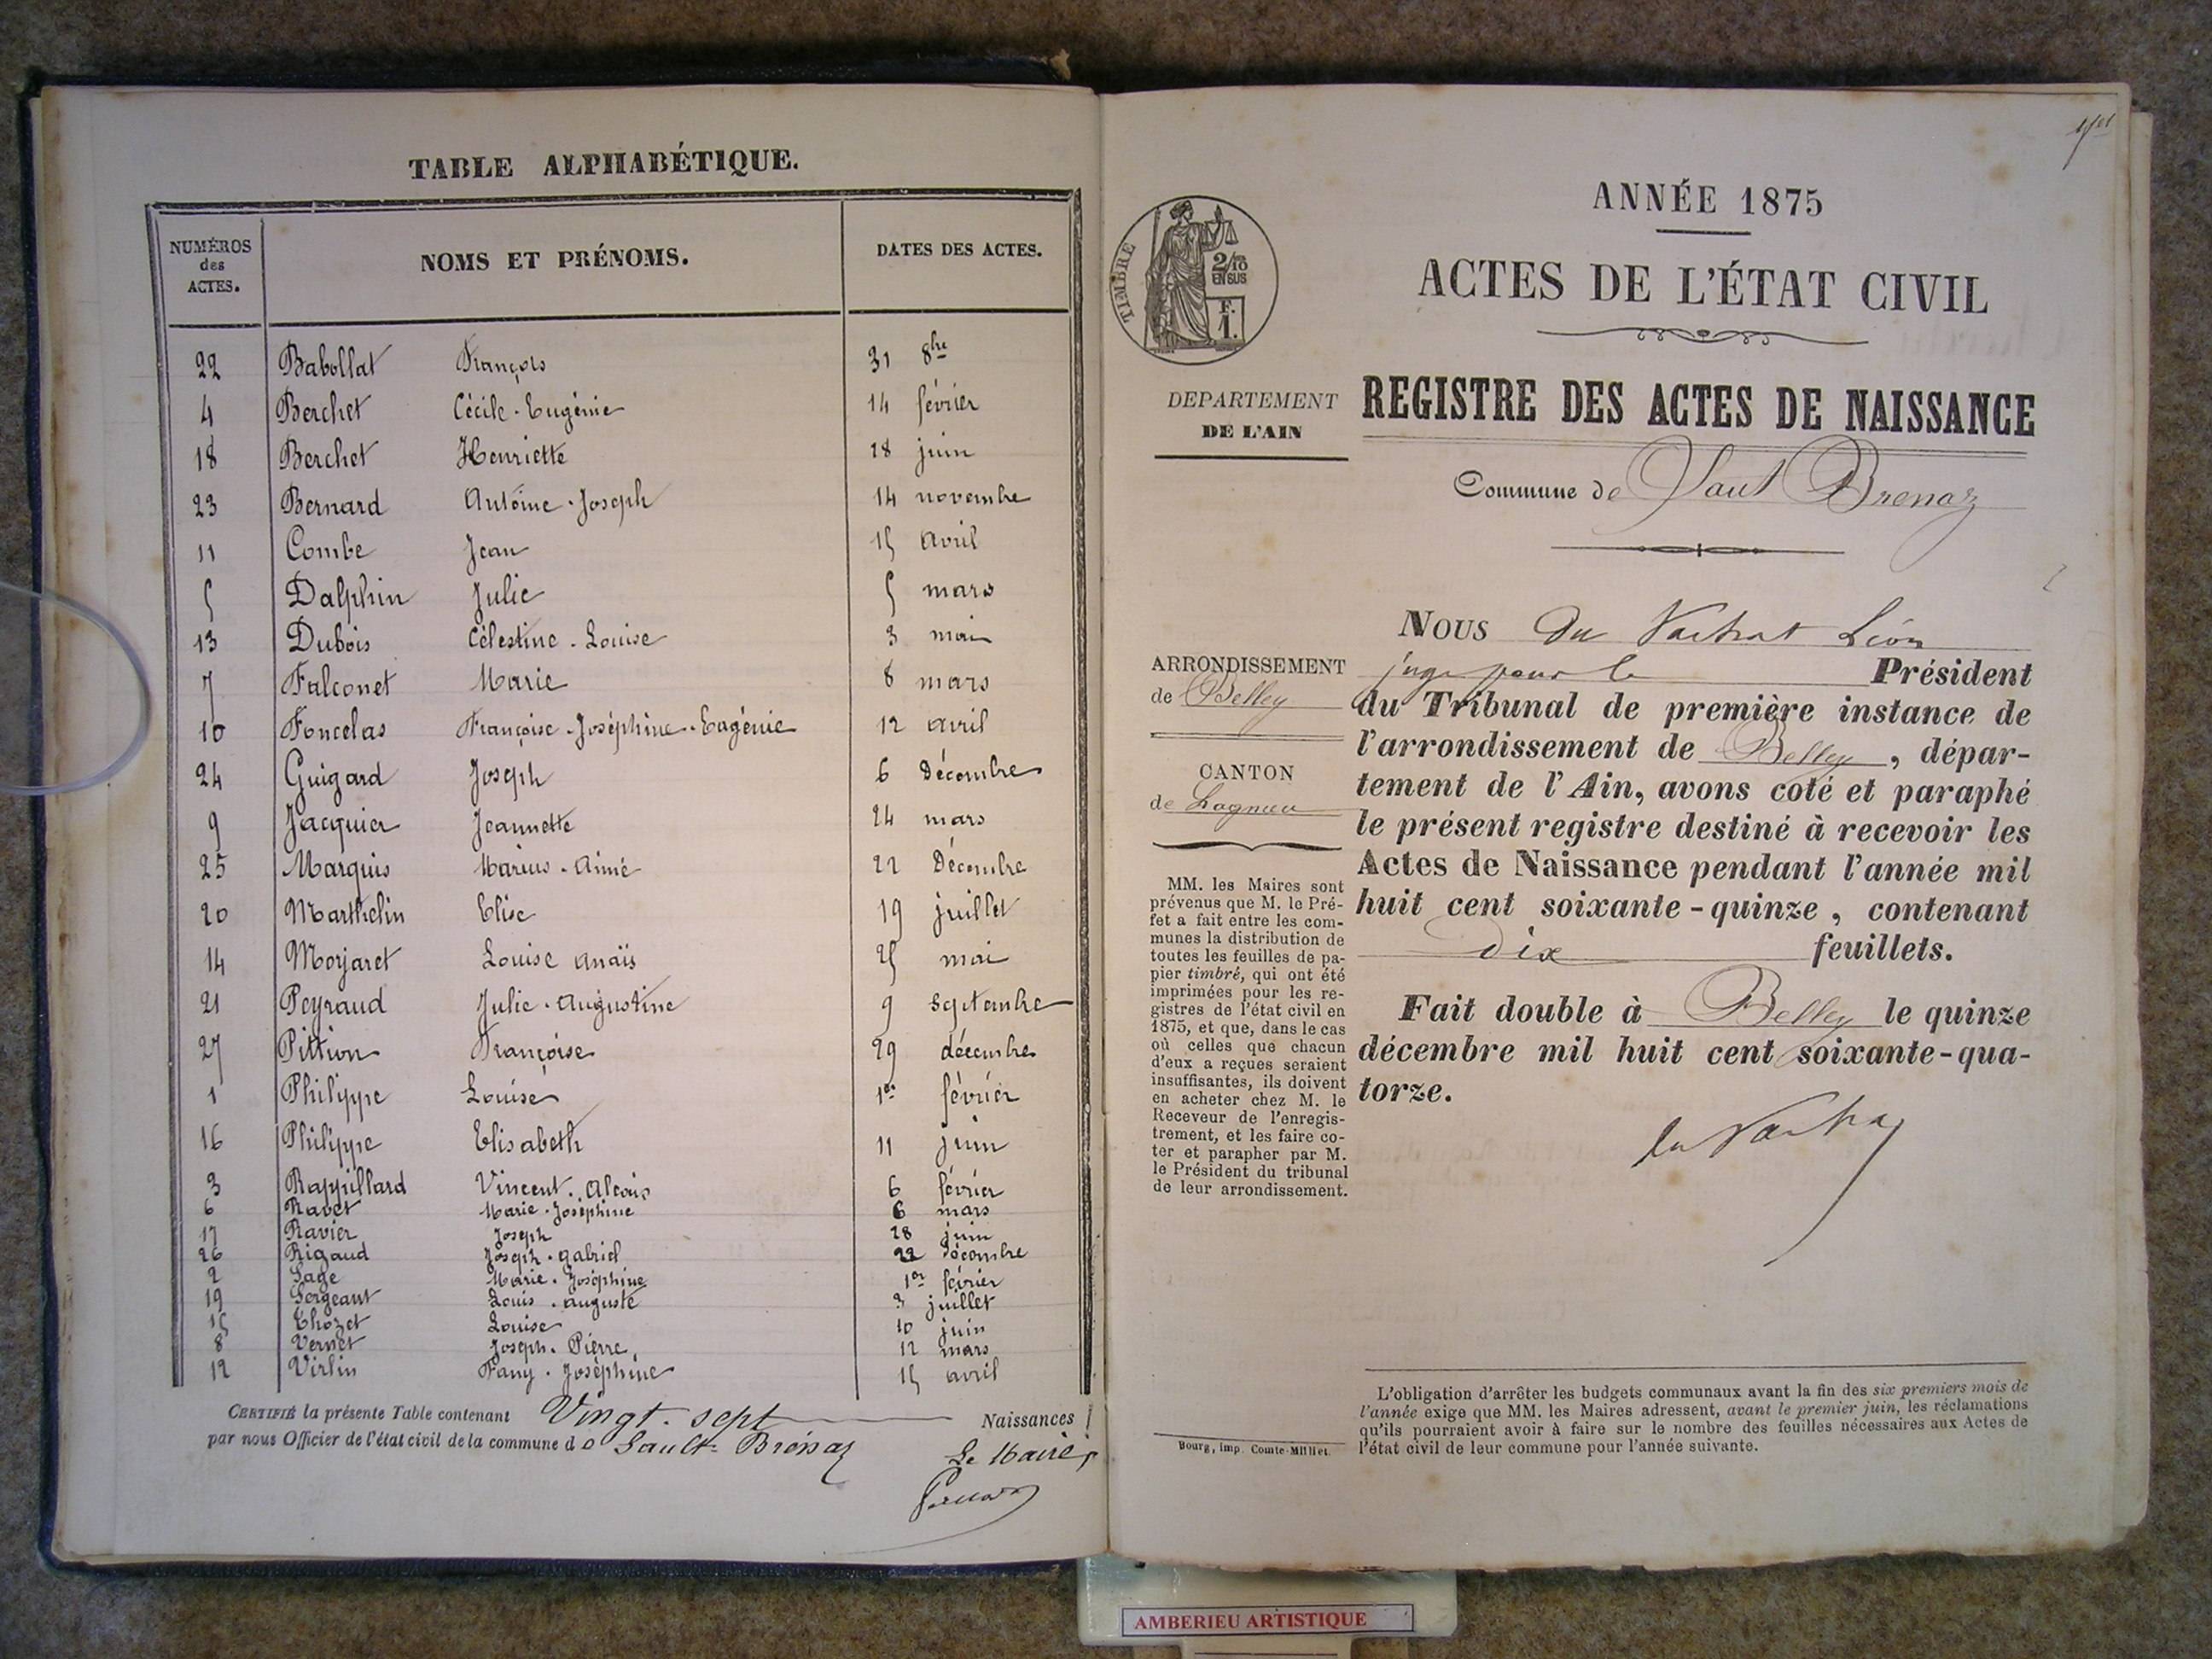 TABLE ALPHABÉTIQUE.
NUMÉROS des ACTES. NOMS ET PRÉNOMS. DATES DES ACTES.
22 Babollat François 31 8bre
4 Berchet Cécile-Eugénie 14 février
18 Berchet Henriette 28 juin
23 Bernard Antoine-Joseph 14 novembre
11 Combe Jean 15 avril
5 Dalphin Julie 5 mars
13 Dubois Célestine-Louise 3 mai
7 Falconet Marie 8 mars
10 Foncelas Françoise-Joséphine-Eugénie 12 avril
24 Guigard Joseph 6 Décembre
9 Jacquier Jeannette 24 mars
25 Marquis Marius-Aimé 22 Décembre
20 Marthelin Elise 19 juillet
14 Morjaret Louise Anaïs 25 mai
21 Peyraud Julie-Augustine 9 septembre
27 Pittion Françoise 29 décembre
1 Philippe Louise 1er février
16 Philippe Elisabeth 11 juin
3 Rappillard Vincent 6 février
6 Ravet Marie-Joséphine 6 mars
17 Ravier Joseph 28 juin
26 Rigaud Joseph-Gabriel 22 Décembre
2 Sage Marie-Joséphine 1er février
19 Sergeant Louis-Auguste 3 juillet
15 Thozet Louise 10 juin
8 Vernet Joseph-Pierre 12 mars
12 Virlin Fany-Joséphine 15 avril
CERTIFIÉ la présente Table contenant Vingt-sept Naissances
par nous Officier de l'état civil de la commune de Sault-Brénaz
Le Maire,
1er
ANNÉE 1875
ACTES DE L'ÉTAT CIVIL
TIMBRE
2/10
EN SUS
F.
1.
DEPARTEMENT
DE L'AIN
REGISTRE DES ACTES DE NAISSANCE
Commune de Saut Brenaz
ARRONDISSEMENT
de Belley
CANTON
de Lagnieu
MM. les Maires sont
prévenus que M. le Pré-
fet a fait entre les com-
munes la distribution de
toutes les feuilles de pa-
pier timbré, qui ont été
imprimées pour les re-
gistres de l'état civil en
1875, et que, dans le cas
où celles que chacun
d'eux a reçues seraient
insuffisantes, ils doivent
en acheter chez M. le
Receveur de l'enregis-
trement, et les faire co-
ter et parapher par M.
le Président du tribunal
de leur arrondissement.
Nous Du Vachat Léon
juge pour le Président
du Tribunal de première instance de
l'arrondissement de Belley, dépar-
tement de l'Ain, avons coté et paraphé
le présent registre destiné à recevoir les
Actes de Naissance pendant l'année mil
huit cent soixante-quinze, contenant
dix feuillets.
Fait double à Belley le quinze
décembre mil huit cent soixante-qua-
torze.
du Vachat
L'obligation d'arrêter les budgets communaux avant la fin des six premiers mois de
l'année exige que MM. les Maires adressent, avant le premier juin, les réclamations
qu'ils pourraient avoir à faire sur le nombre des feuilles nécessaires aux Actes de
l'état civil de leur commune pour l'année suivante.
Bourg, imp. Comte-Milliet.
AMBERIEU ARTISTIQUE